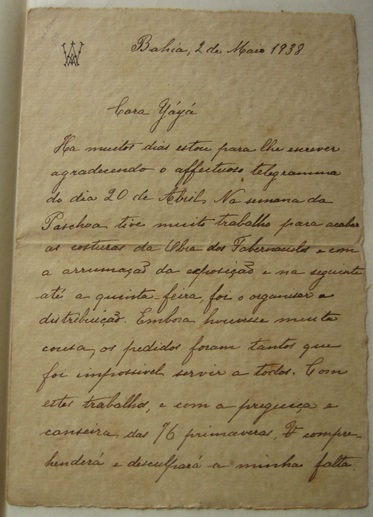 Bahia, 2 de Maio 1938
Cara Yáyá
Ha muitos dias estou para lhe escrever
agradecendo o affectuoso telegramma
do dia 20 de Abril. Na semana da
Paschoa tive muito trabalho para acabar
as costuras da Obra dos Tabernaculos e com
a arrumação da exposição e na seguinte
até a quinta feira, foi o organisar a
distribuição. Embora houvesse muita
cousa, os pedidos foram tantos que
foi impossivel servir a todos. Com
estes trabalhos, e com a preguiça e
canseira das 76 primaveras, V. compre-
henderá e desculpará a minha falta.